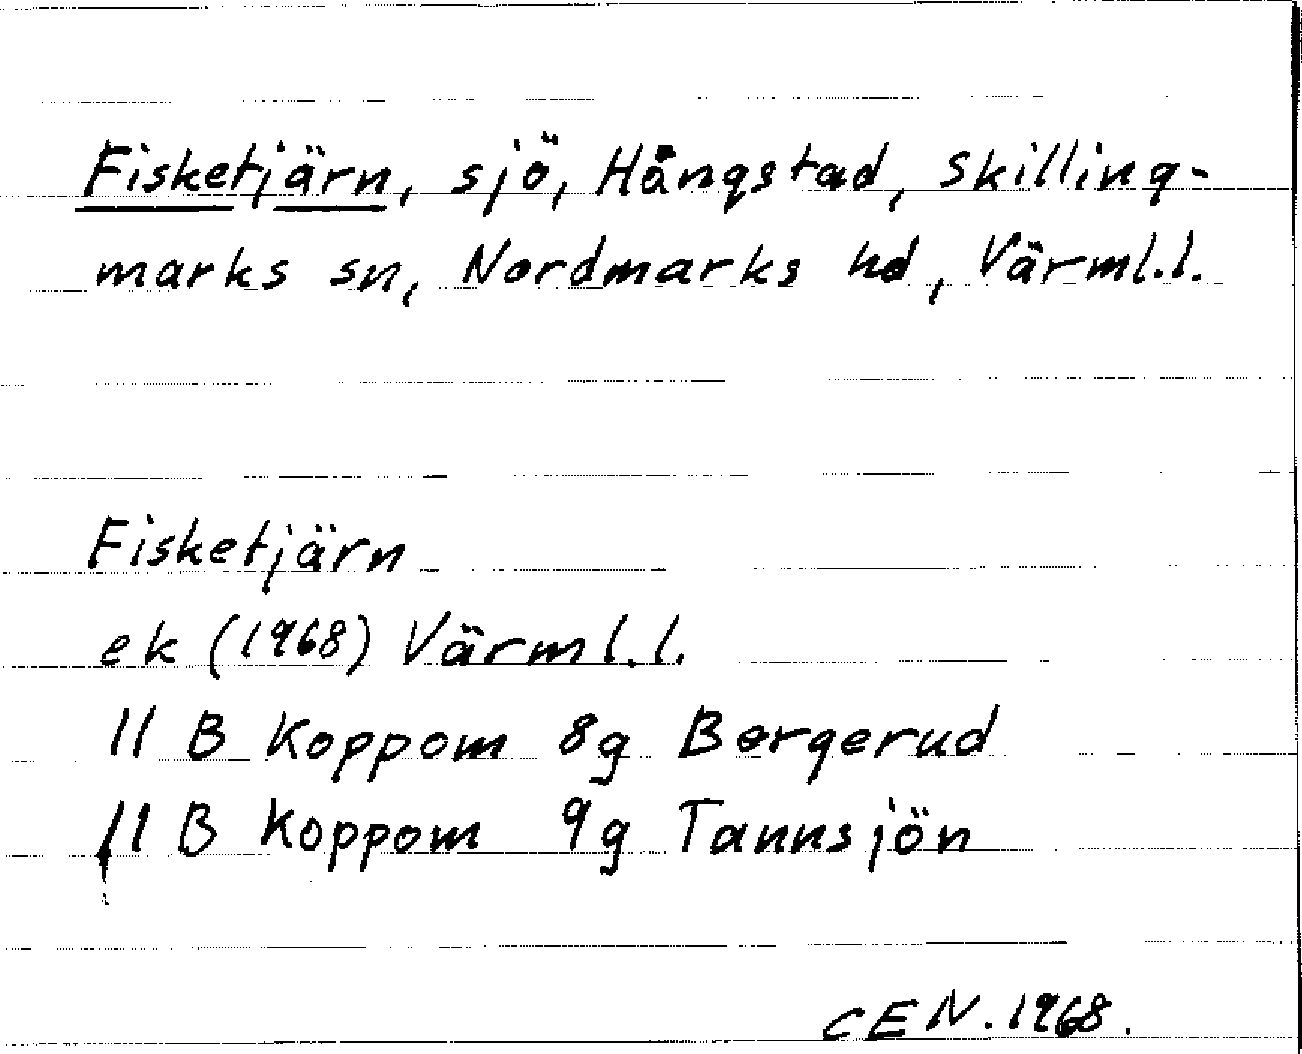 Fisketjärn, sjö, Hångstad, Skilling-
marks sn, Nordmarks hd, Värml.l.
Fisketjärn
ek (1968) Värml.l.
11 B Koppom 8g Bergerud
11 B Koppom 9g Tannsjön
CEN. 1968.